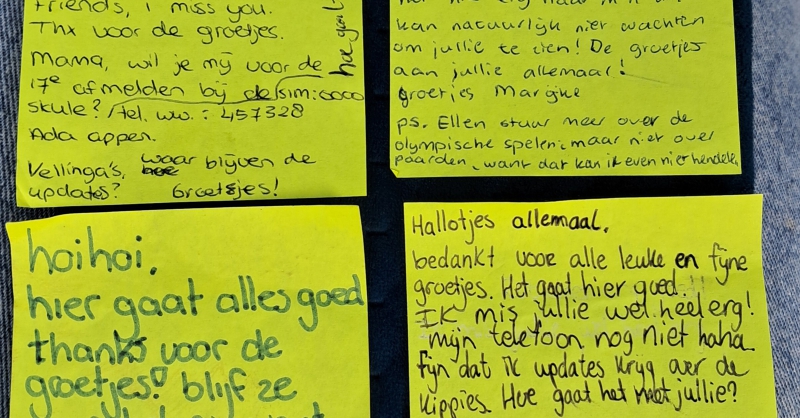 Friends, I miss you.
Thx voor de groetjes.
Mama, wil je mij voor de
17e afmelden bij de sim:0000
skule? /tel. ww.: 457328
Ada appen.
Vellinga's, waar blijven de
updates? Groetsjes!
kan natuurlijk niet wachten
om jullie te zien! De groetjes
aan jullie allemaal!
groetjes Marijke
ps. Ellen stuur meer over de
olympische spelen, maar niet over
paarden, want dat kan ik even niet hendelen
hoihoi,
hier gaat alles goed
thanks voor de
groetjes! blijf ze
Hallotjes allemaal,
bedankt voor alle leuke en fijne
groetjes. Het gaat hier goed.
IK mis jullie wel heel erg!
mijn telefoon nog niet haha
fijn dat ik updates krijg over de
kippies. Hoe gaat het met jullie?